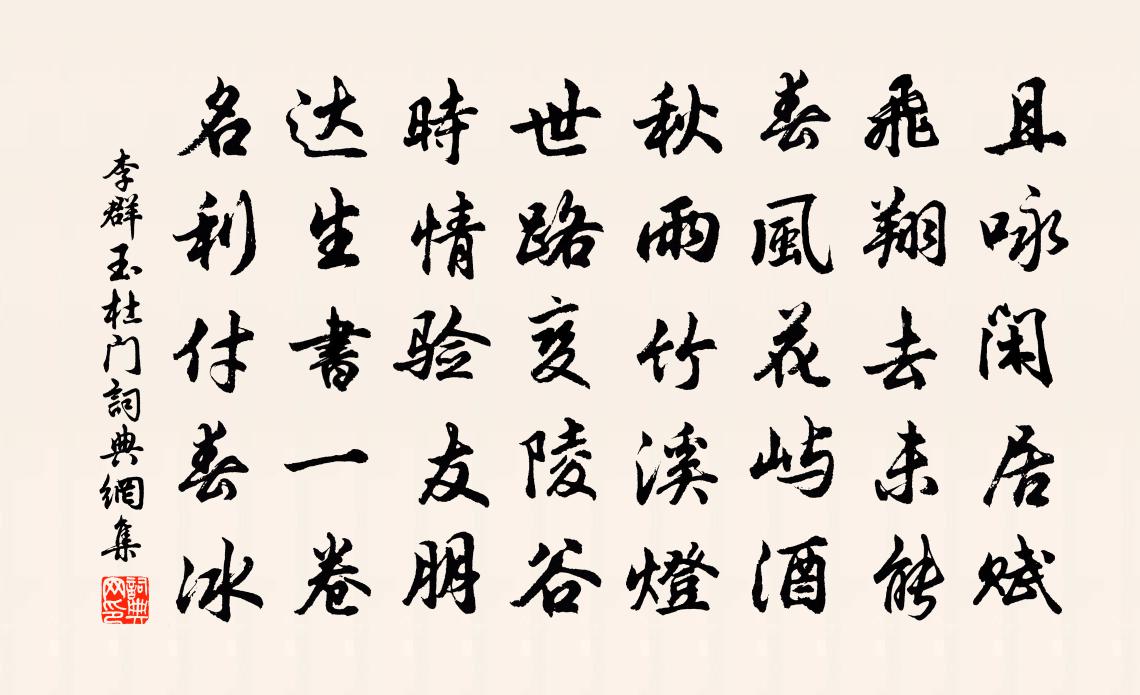 且咏闲居赋
飛翔去未能
春風花屿酒
秋雨竹溪燈
世路变陵谷
時情验友朋
达生書一卷
名利付春冰
李群玉杜门詞典網集
詞典网印